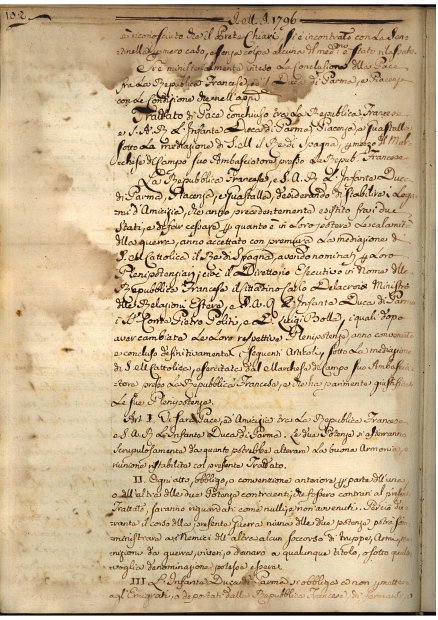 192.
1796
e riconosciuto che il Prete Chiari, si è incontrato con la
nello
Si è ministerialmente inteso la conclusione della Pace
fra la Repubblica Francese, ed il Duca di Parma, e Piacenza
con le Condizione che
Trattato di Pace conchiuso tra la Repubblica Francese
e S. A. R. L'Infante Duca di Parma, Piacenza, e Guastalla
sotto la mediazione di S. M. il Re di Spagna, e mezzo del Mar-
chese del Campo suo Ambasciatore presso la Repub. Francese
La Repubblica Francese, e S. A. R. L'Infante Duca
di Parma, Piacenza, e Guastalla, desiderando di stabilire i Lega-
mi d'Amicizia, che anno precedentemente esistito fra i due
Stati, e di far cessare per quanto è in loro potere le calamità
della guerra, anno accettato con premura la mediazione di
S. M. Cattolica il Re di Spagna, avendo nominati per Loro
Plenipotenziarj, cioè il Direttorio Esecutivo in nome della
Repubblica Francese il Cittadino Carlo Delacroix Ministro
delle Relazioni Estere, e S. A. R. L'Infante Duca di Parma
i Sr. Conte Pietro Politi, e D. Luigi Bolla, i quali dopo
aver cambiate le Loro rispettive Plenipotenze anno convenuto
e concluso definitivamente i seguenti Articoli, sotto la mediazione
di S. M. Cattolica, esercitata dal Marchese del Campo suo Ambascia-
tore presso la Repubblica Francese, e che ha parimente giustificate
Le sue Plenipotenze.
Art. I. Vi sarà Pace, ed Amicizia tra la Repubblica Francese
e S. A. R. L'Infante Duca di Parma. Le due Potenze si asterranno
scrupulosamente da quanto potrebbe alterare La buona Armonia, e
riunione ristabilite col presente Trattato.
II. Ogni atto, obbligo, o convenzione anteriore per parte dell'una
o dell'altra delle due Potenze contraenti, che fossero contrari al presente
Trattato, saranno riguardati come nulli, e non avvenuti. Perciò du-
rante il corso della presente guerra niuna delle due potenze potrà som-
ministrare ai Nemici dell'altra alcun soccorso di truppe, Armi, mu-
nizioni da guerra, viveri, o danaro a qualunque titolo, o sotto qual-
voglia denominazione potesse essere.
III. L'Infante Duca di Parma si obbliga a non permettere
agl'Emigrati, o deportati dalla Repubblica Francese di fermarsi, o